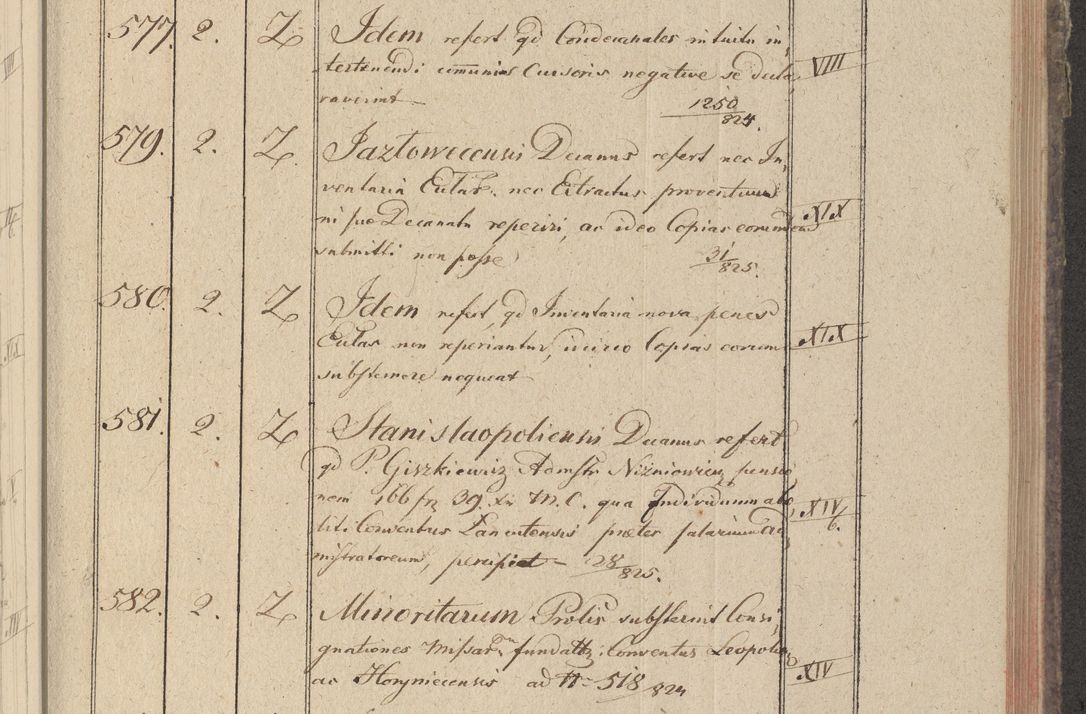 577. 2. Z Idem refert qd Condecanales intuitu in,
tertenendi communis Cursoris negative se decla, VIII
raverint — 1250/824.
579. 2. Z. Jazlowecensis Decanus refert nec In,
ventaria Eccl nec Extractus proventuum
in suo Decanatu reperiri, ac ideo Copias eorundem XIX
submitti non posse 31/825.
580. 2. Z Idem refert, qd Inventaria nova penes
Eccl non reperiantur, idcirco Copias eorum XIX
substernere nequeat —
581. 2. Z Stanislaopoliensis Decanus refert
qd P. Giszkiewicz Admstr Nizniowiens pensio,
nem 166 fr 39. Xr M. C. qua Individuum abo, XIV/6.
liti Conventus Lancutensis praeter salarium Ad,
mistratoreum, percipiat — 28/825.
582. 2. Z Minoritarum Prolis substernit Consi,
gnationes Missar fundat Conventus Leopolien XIV
ac Horyniecensis ad N 518/824